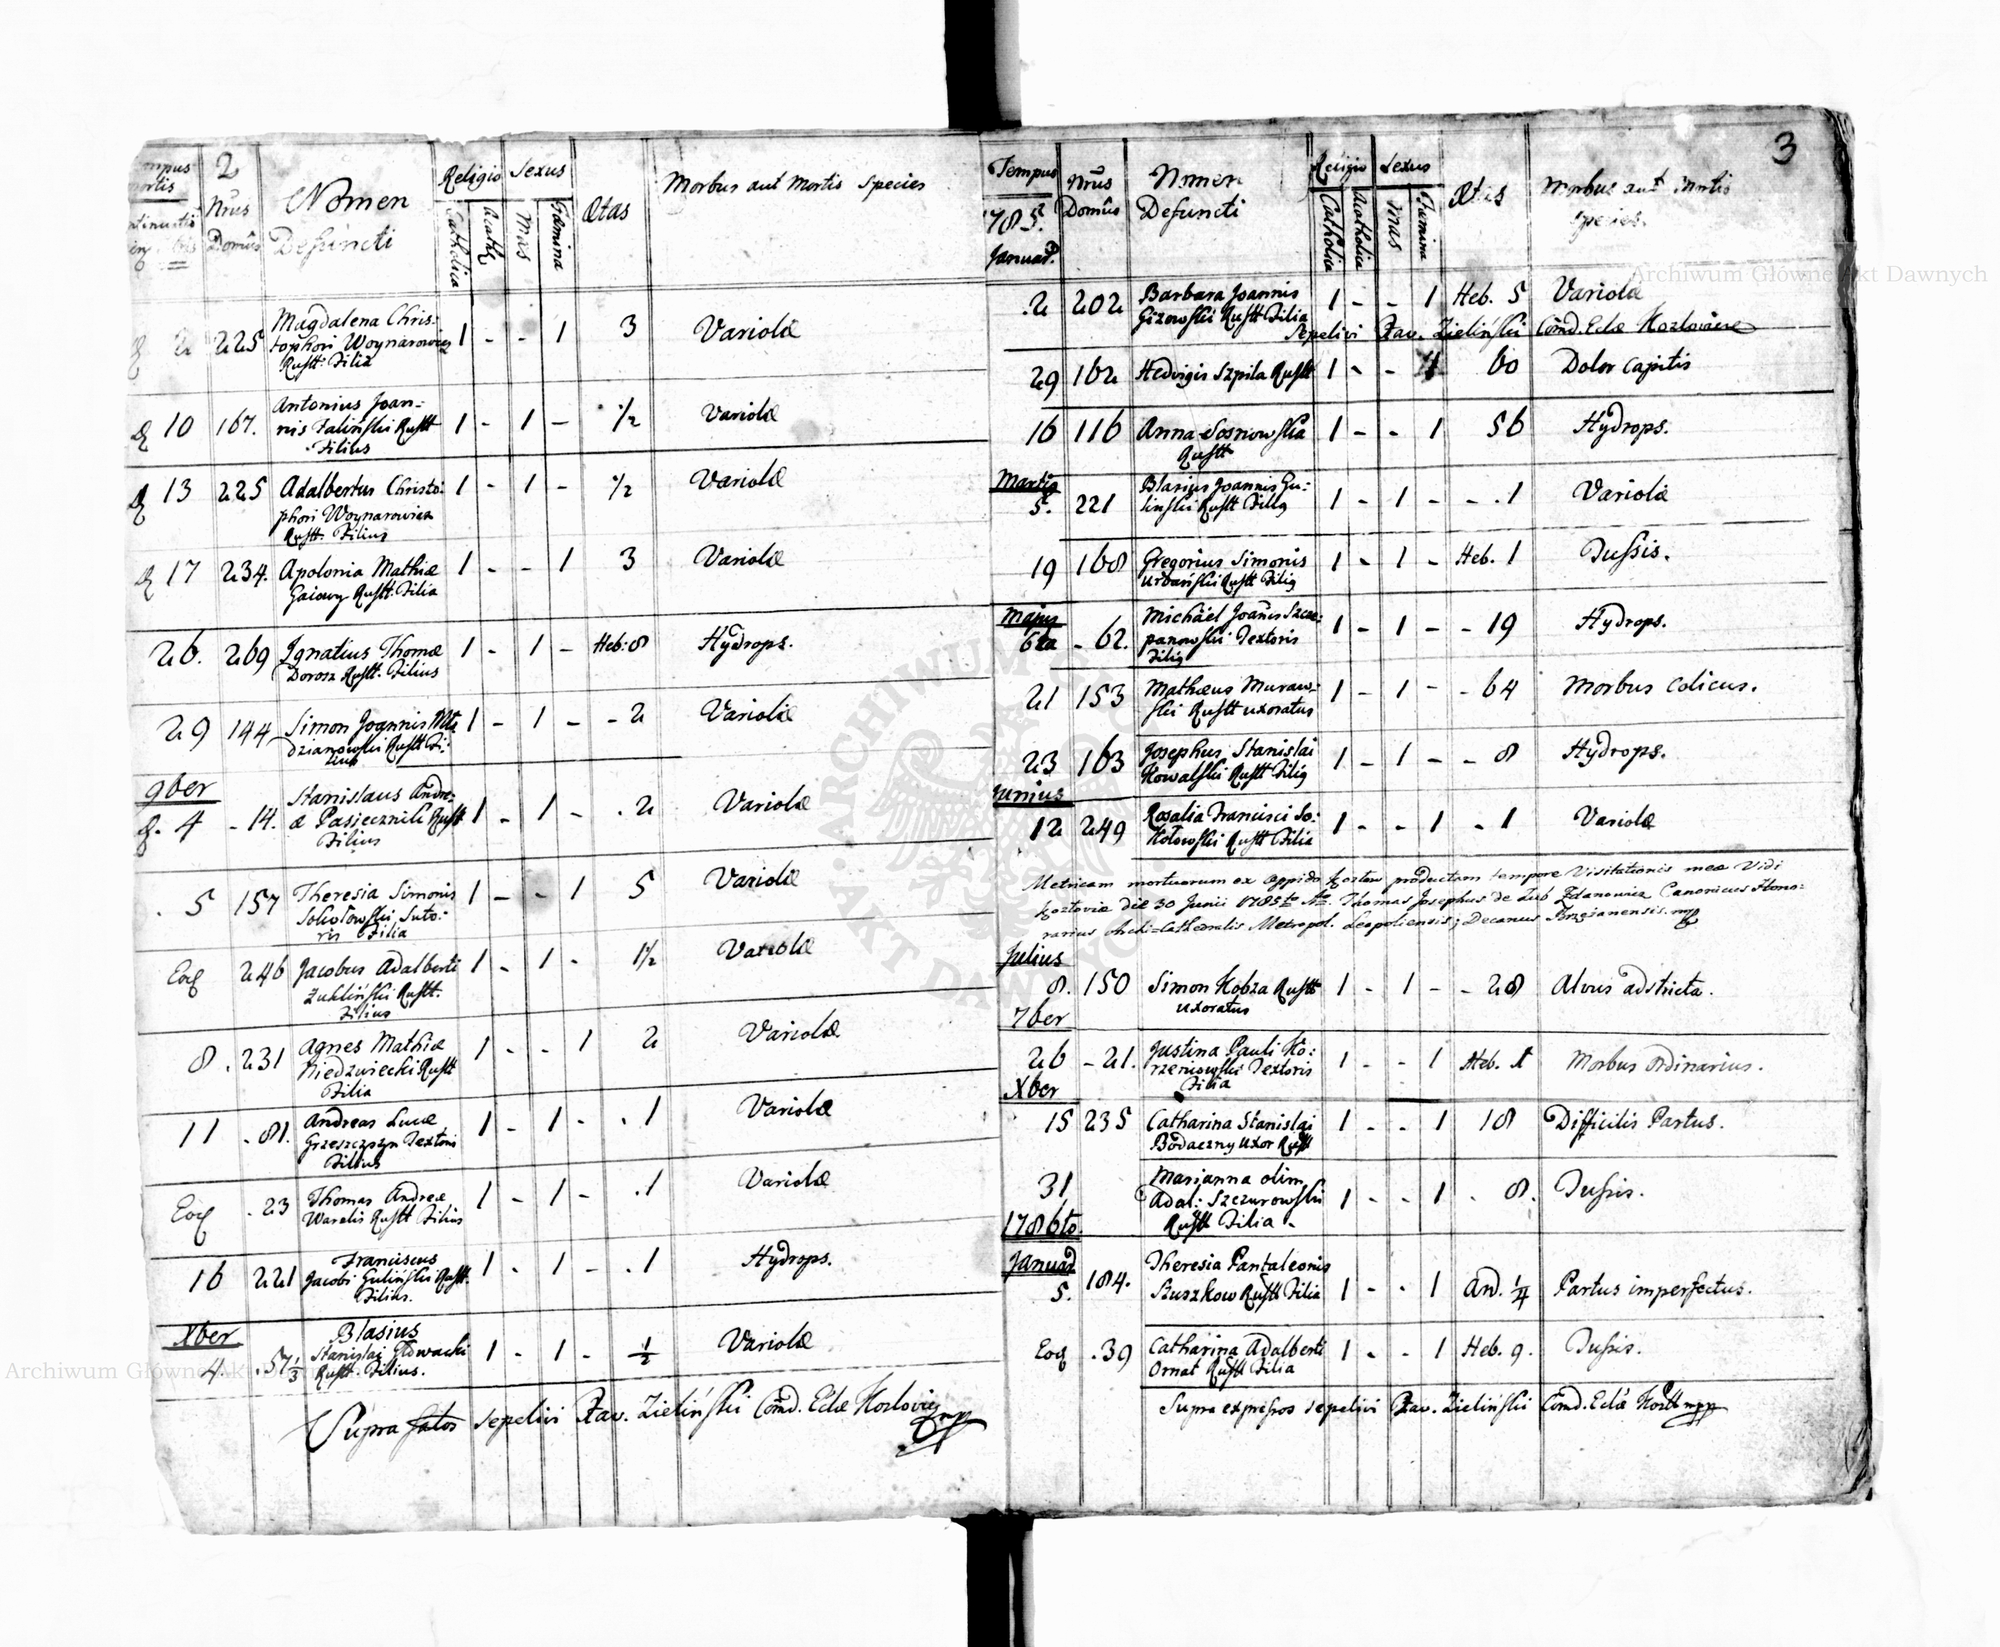 2
Nrus Domus
Nomen Defuncti
Religio
Catholica
Acath
Sexus
Mas
Fæmina
Ætas
Morbus aut Mortis Species
2 225 Magdalena Chris:
tophori Woynarowicz
Rustt: Filia 1 - - 1 3 Variolæ
10 167. Antonius Joan:
nis Falinski Rustt
Filius 1 - 1 - ½ Variolæ
13 225 Adalbertus Christo:
phori Woynarowicz
Rustt. Filius 1 - 1 - ½ Variolæ
17 234. Apolonia Mathiæ
Gaiowy Rustt. Filia 1 - - 1 3 Variolæ
26. 269 Ignatius Thomæ
Dorosz Rustt. Filius 1 - 1 - Heb: 8 Hydrops.
29 144 Simon Joannis
Rustt Fi:
lius 1 - 1 - - 2 Variolæ
9ber
4 - 14. Stanislaus Andre:
æ Pasiecznik Rustt
Filius 1 - 1 - . 2 Variolæ
. 5 157 Theresia Simonis
Sokołowski Suto:
ris Filia 1 - - 1 5 Variolæ
Eod 246 Jacobus Adalberti
Zukliński Rustt.
Filius 1 - 1 - 1½ Variolæ
8 . 231 Agnes Mathiæ
Niedzwiecki Rustt
Filia 1 - - 1 2 Variolæ
11 . 81. Andreas Lucæ
Grzeszczyszyn Textoris
Filius 1 - 1 - . 1 Variolæ
Eod . 23 Thomas Andreæ
Waralis Rustt Filius 1 - 1 - . 1 Variolæ
16 221 Franciscus
Jacobi Guliński Rustt.
Filius. 1 - 1 - . 1 Hydrops.
Xber
4 . 57 1/3 Blasius
Stanislai Głowacki
Rustt Filius. 1 - 1 - ½ Variolæ
Supra fatos sepelivi Xav. Zieliński Comd. Eclæ Kozloviens mpp
3
Tempus
1785.
Januar.
Nrus Domus
Nomen Defuncti
Religio
Catholica
Acatholica
Sexus
Mas
Fæmina
Ætas
Morbus aut Mortis
Species.
. 2 202 Barbara Joannis
Gizowski Rustt Filia 1 - - 1 Heb. 5 Variolæ
Sepelivi Xav. Zieliński Comd. Eclæ Kozloviens
29 162 Hedvigis Szpila Rustt 1 - - 1 60 Dolor Capitis
16 116 Anna Sosnowska
Rustt 1 - - 1 56 Hydrops.
Martis
5. 221 Blasius Joannis Gu:
liński Rustt Filiq 1 - 1 - - . 1 Variolæ
19 168 Gregorius Simonis
Urbański Rustt Filiq 1 - 1 - Heb. 1 Tussis.
Majus
6ta - 62. Michäel Joannis Szcze:
panowski Textoris
Filiq 1 - 1 - - 19 Hydrops.
21 153 Mathæus Muraw:
ski Rustt uxoratus 1 - 1 - - 64 Morbus Colicus.
23 163 Josephus Stanislai
Kowalski Rustt Filiq 1 - 1 - - 8 Hydrops.
Junius
12 249 Rosalia Francisci So:
kołowski Rustt Filia 1 - - 1 - 1 Variolæ
Metricam mortuorum ex oppido Kozłow productam tempore Visitationis meæ Vidi
Kozłoviæ die 30 Junii 1785to Thomas Josephus de Zdanowicz Canonicus Hono:
rarius Archi-Cathedralis Metropol. Leopoliensis; Decanus Brzezanensis. mpp
Julius
8. 150 Simon Kobza Rustt
uxoratus 1 - 1 - - 28 Alvus adstricta.
7ber
26 - 21. Justina Pauli Ko:
rzeniowski Textoris
Filia 1 - - 1 Heb. 1 Morbus ordinarius.
Xber
15 235 Catharina Stanislai
Bodaczny uxor Rustt 1 - - 1 18 Difficilis Partus.
31 Marjanna olim
Adal: Szczurowski
Rustt Filia - 1 - - 1 . 8. Tussis.
1786to.
Januar
5. 184. Theresia Pantaleonis
Szuszkow Rustt Filia 1 - - 1 An. ¼ Partus imperfectus.
Eod . 39 Catharina Adalberti
Ornat Rustt Filia 1 - - 1 Heb. 9. Tussis.
Supra expressos sepelivi Xav. Zieliński Comd. Eclæ Kozlt mpp
Archiwum Główne Akt Dawnych
Archiwum Główne Akt Dawnych
ARCHIWUM GŁÓWNE AKT DAWNYCH